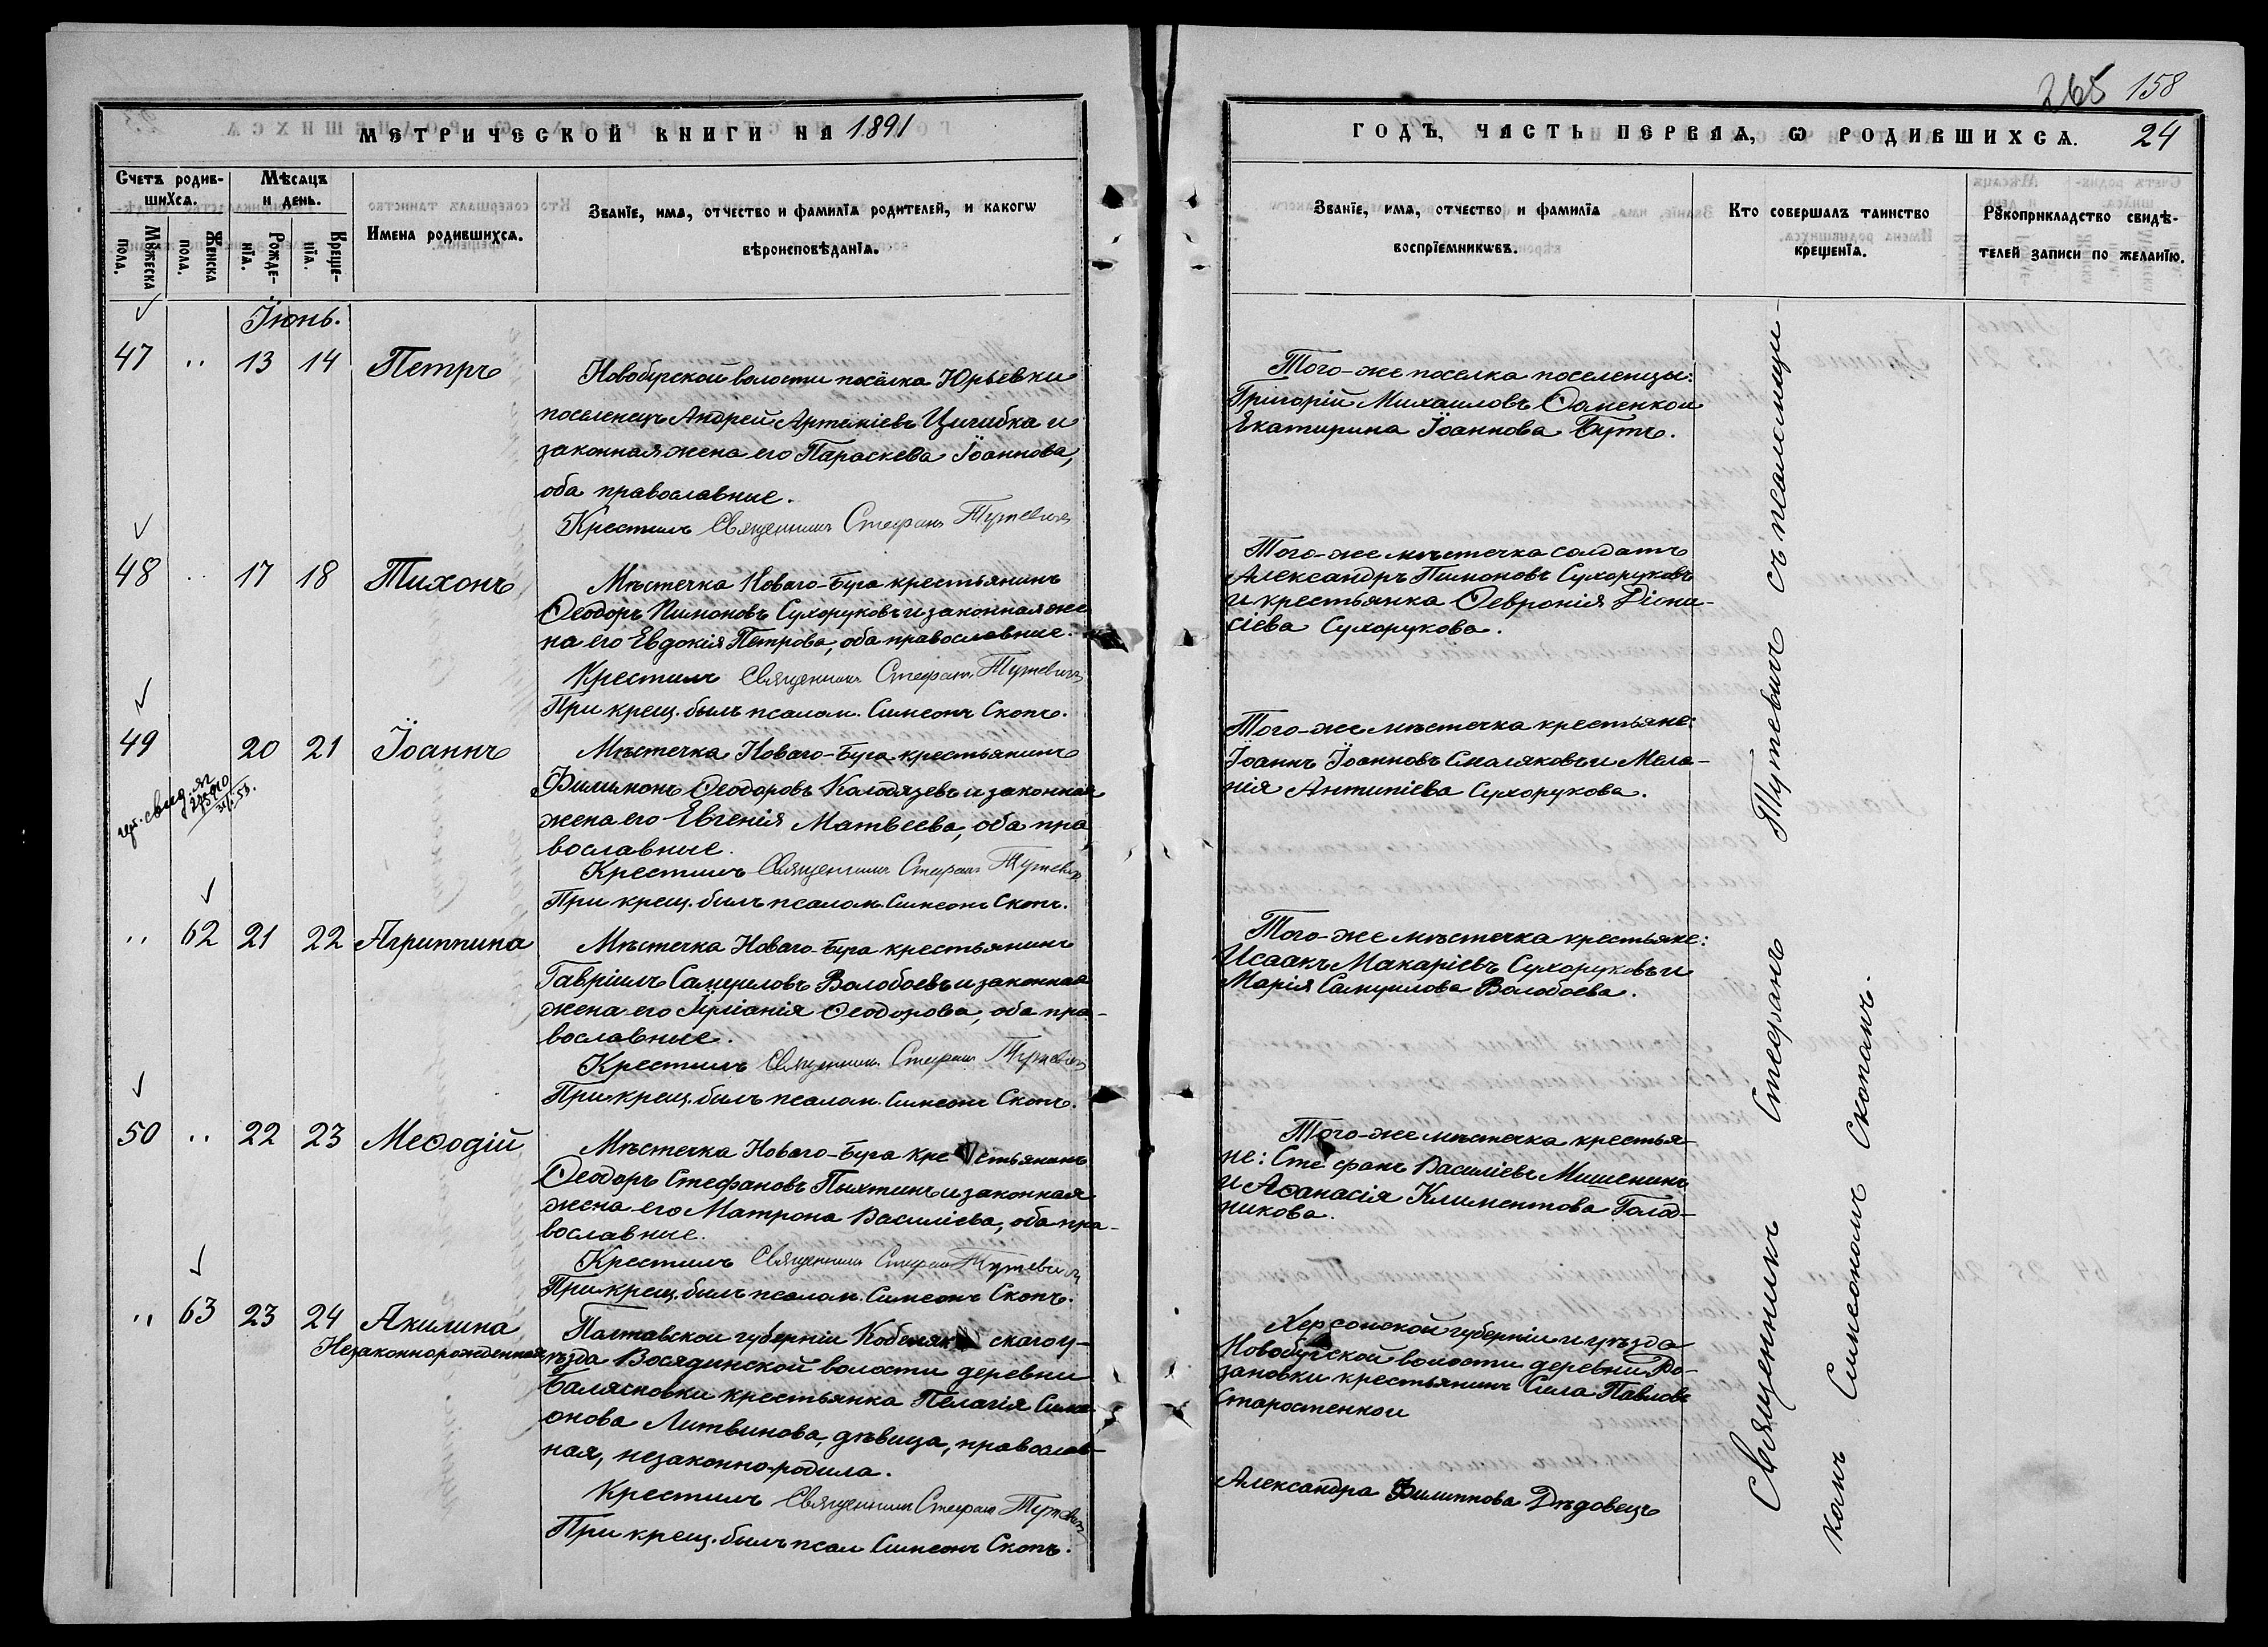 265 158
МЕТРИЧЕСКОЙ КНИГИ НА 1891
ГОДЪ, ЧАСТЬ ПЕРВАЯ, Ѡ РОДИВШИХСѦ. 24
Счетъ родив-
шихсѧ.
Мѣсѧцъ
и день.
Мꙋжеска
пола.
Женска
пола.
Рожде-
нїѧ.
Креще-
нїѧ.
Имена родившихсѧ.
Званїе, имѧ, отчество и фамилїѧ родителей, и какогѡ
вѣроисповѣданїѧ.
Званїе, имѧ, отчество и фамилїѧ
воспрїемникѡвъ.
Кто совершалъ таинство
крещенїѧ.
Рꙋкоприкладство свидѣ-
телей записи по желанїю.
Їюнь.
47 ,, 13 14 Петръ
Новобугской волости посёлка Юрьевки
поселенецъ Андрей Артеміевъ Цигибка и
законная жена его Параскева Їоаннова,
оба православные.
Крестилъ Священникъ Стефанъ Тутевичъ
Того-же поселка поселенцы:
Григорій Михаиловъ Оаменко и
Екатирина Їоаннова Бутъ.
48 ,, 17 18 Тихонъ
Мѣстечка Новаго-Буга крестьянинъ
Ѳеодоръ Пимоновъ Сухоруковъ и законная же
на его Евдокія Петрова, оба православные.
Крестилъ Священникъ Стефанъ Тутевичъ
При крещ. былъ псалом. Симеонъ Скопъ.
Того-же мѣстечка солдатъ
Александръ Пимоновъ Сухоруковъ
и крестьянка Ѳевронія Діони-
сіева Сухорукова.
49 20 21 Їоаннъ
Мѣстечка Новаго-Буга крестьянинъ
Филимонъ Ѳеодоровъ Колодязевъ и законная
жена его Евгенія Матвеева, оба пра
вославные.
Крестилъ Священникъ Стефанъ Тутевичъ
При крещ. былъ псалом. Симеонъ Скопъ.
Того-же мѣстечка крестьяне:
Їоаннъ Їоанновъ Смаляковъ и Мела-
нія Антипіева Сухорукова.
,, 62 21 22 Агриппина
Мѣстечка Новаго-Буга крестьянинъ
Гавріилъ Самуиловъ Волобоевъ и законная
жена его Їуліанія Ѳеодорова, оба пра-
вославные.
Крестилъ Священникъ Стефанъ Тутевичъ
При крещ. былъ псалом. Симеонъ Скопъ.
Того-же мѣстечка крестьяне:
Исаакъ Макаріевъ Сухоруковъ и
Марія Самуилова Волобоева.
50 ,, 22 23 Меѳодій
Мѣстечка Новаго-Буга крестьянинъ
Ѳеодоръ Стефановъ Пыхтинъ и законная
жена его Матрона Василіева, оба пра-
вославные.
Крестилъ Священникъ Стефанъ Тутевичъ
При крещ. былъ псалом. Симеонъ Скопъ.
Того-же мѣстечка крестья-
не: Стефанъ Василіевъ Мишенинъ
и Аѳанасія Климентова Голод-
никова.
,, 63 23 24 Акилина
Незаконнорожденная
Полтавской губерніи Кобелякскаго у-
ѣзда волости деревни
Балясновки крестьянка Пелагія Сима
онова Литвинова, дѣвица, православ-
ная, незаконно-родила.
Крестилъ Священникъ Стефанъ Тутевичъ
При крещ. былъ псал Симеонъ Скопъ.
Херсонской губерніи и уѣзда
Новобугской волости деревни Ро-
зановки крестьянинъ Сила Павловъ
Старостенко и
Александра Филиппова Дѣдовецъ
Священникъ Стефанъ Тутевичъ съ псаломщи-
комъ Симеономъ Скопомъ.